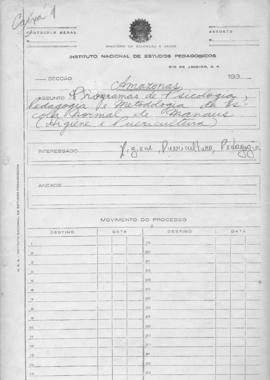 Caixa 1
PROTOCOLO GERAL
ASSUNTO
MINISTÉRIO DA EDUCAÇÃO E SAÚDE
INSTITUTO NACIONAL DE ESTUDOS PEDAGÓGICOS
RIO DE JANEIRO, D. F.
SECÇÃO Amazonas 193
ASSUNTO Programas de Psicologia,
Pedagogia e Metodologia da Es-
cola Normal de Manaus
(Higiene e Puericultura)
INTERESSADO Higiene, Puericultura, Pedagogia
ANEXOS
MOVIMENTO DO PROCESSO
DESTINO DATA DESTINO DATA
1
2
3
4
5
6
7
8
9
10
11
12
13